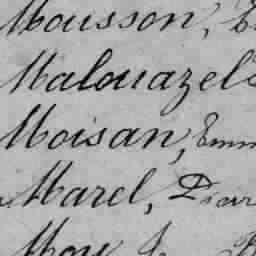 Mousson,
Malouazel
Moisan, Emm
Marel, Pier
Moy